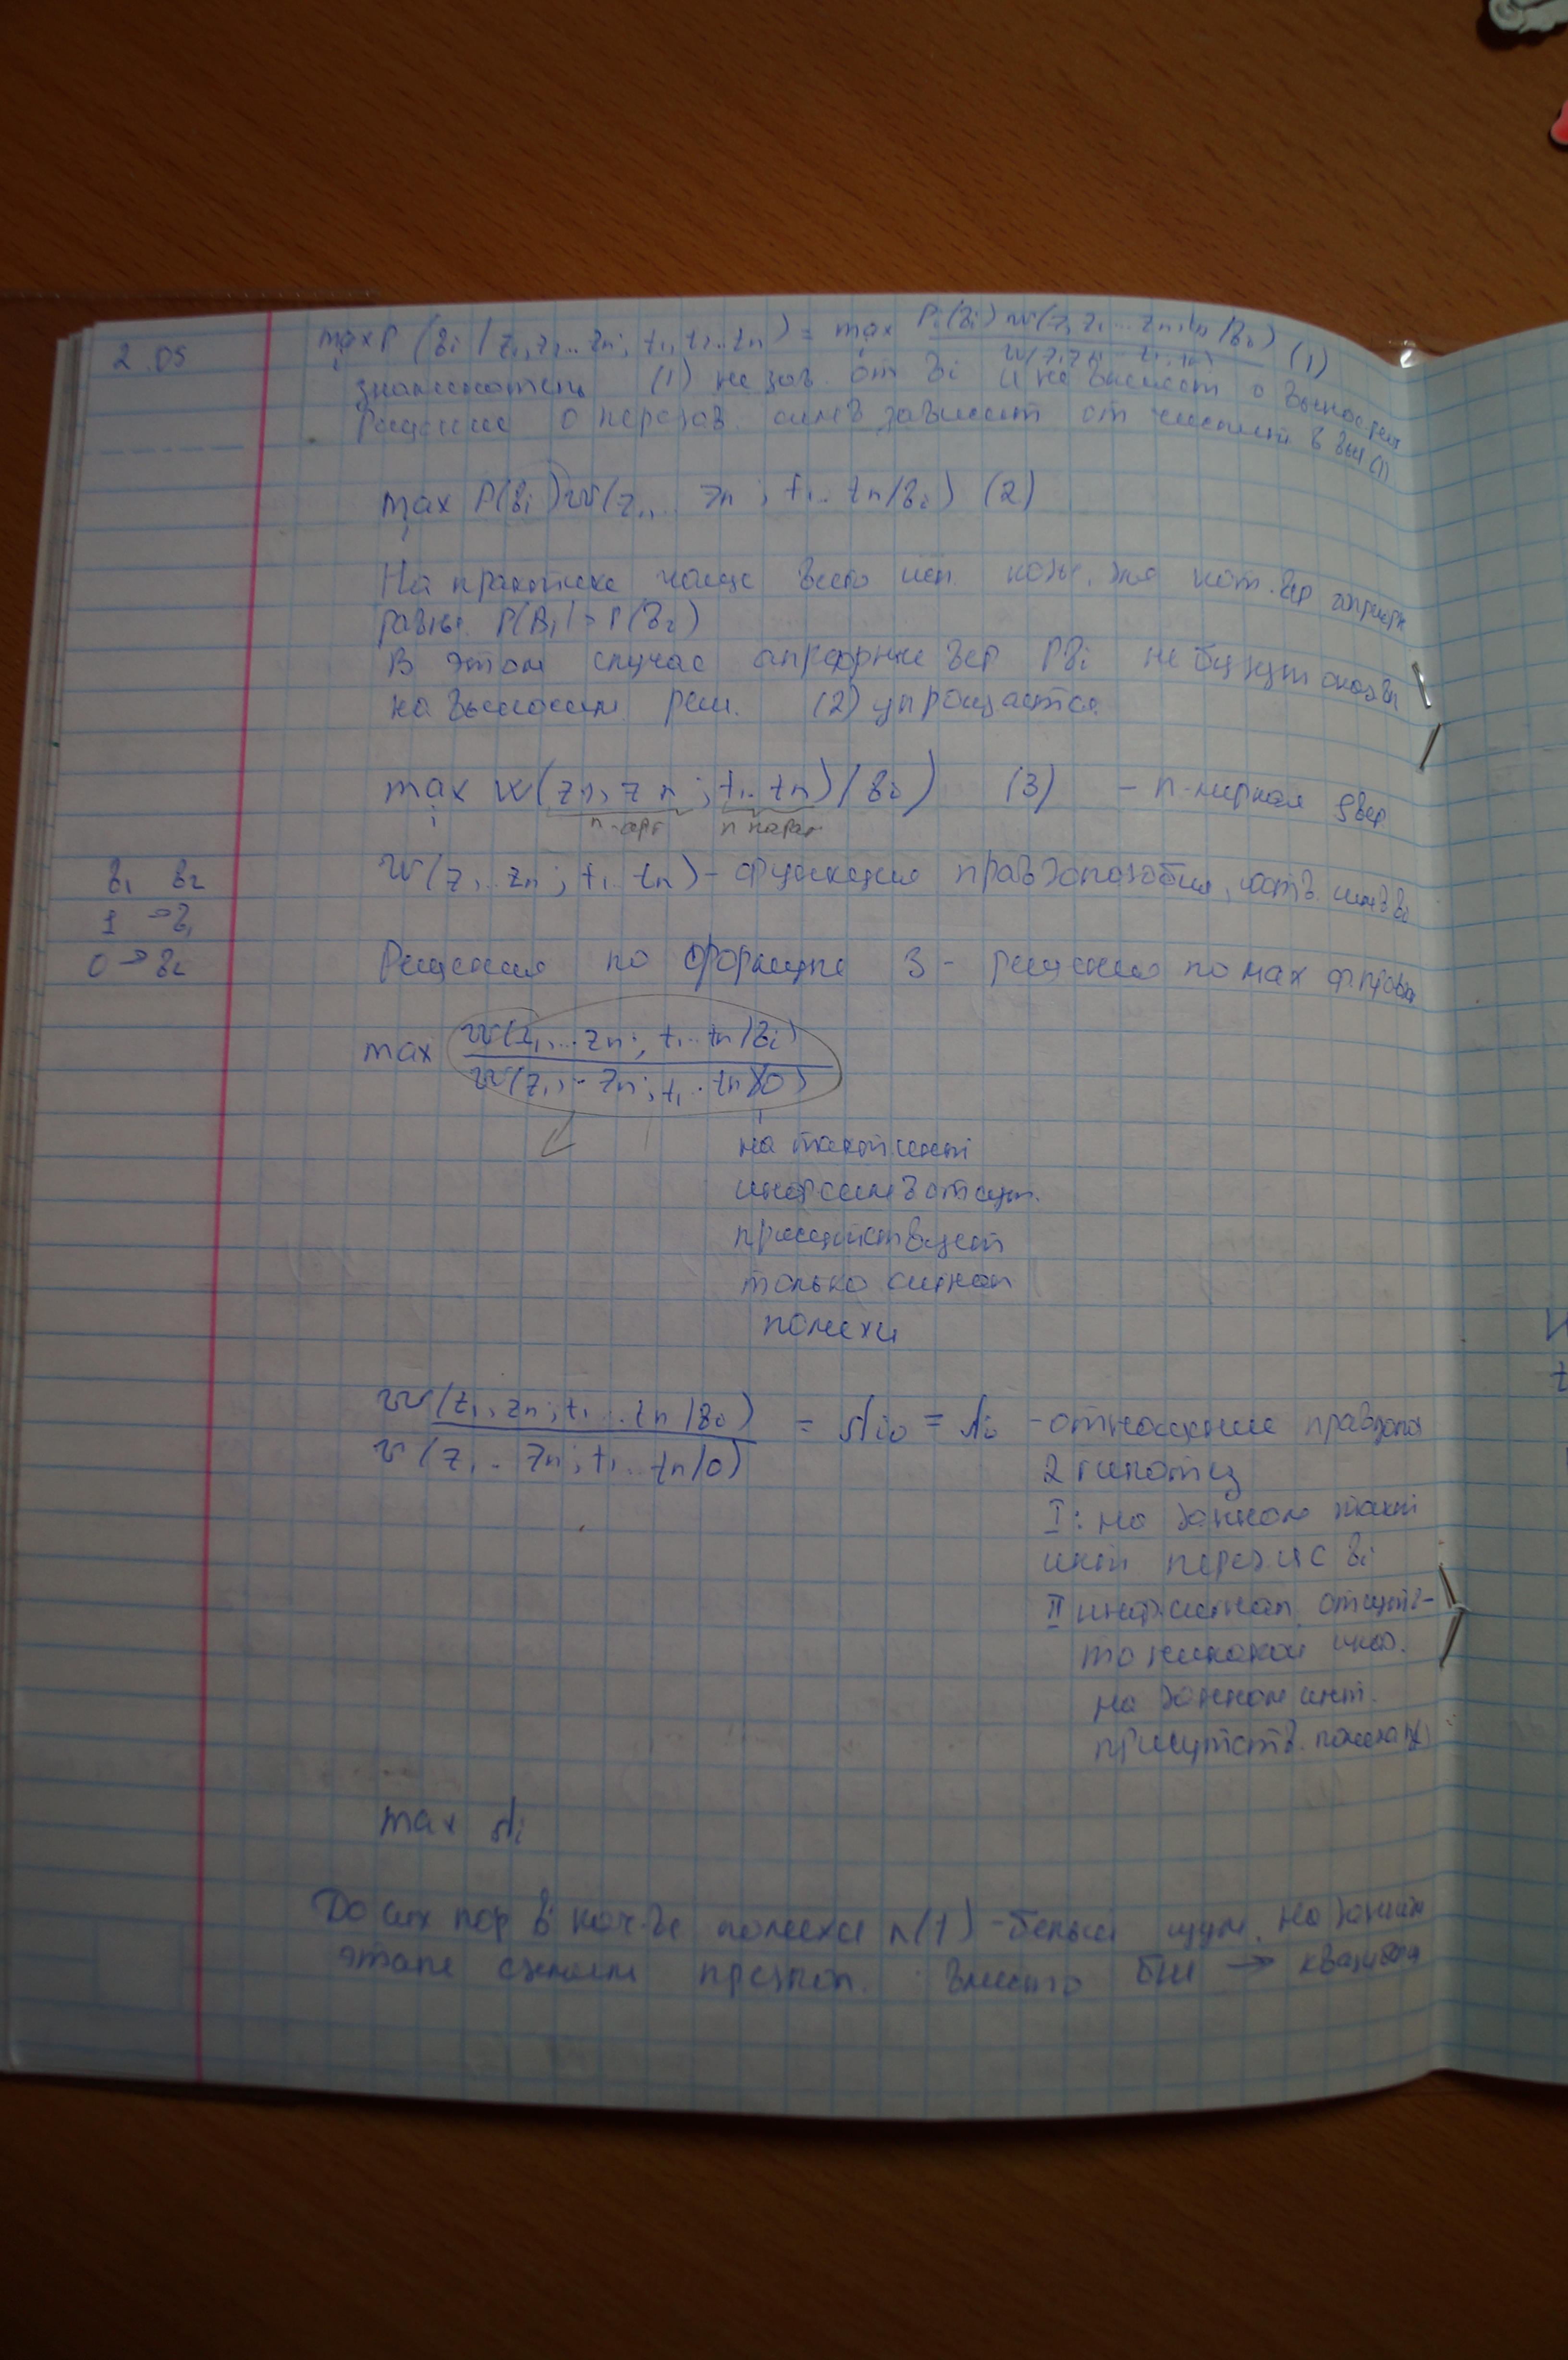 2.05
max P (вi / z1, z2... zn; t1, t2.. tn) = max Pi(вi) w(z1 z2... zn, tn /вi) (1)
i i w(z1 z2 t1. tn)
знаменатель (1) не зав. от вi и не
Решение о передав. симв зависит от числит в выр (1)
max P(вi) w(z1,... zn ; t1.. tn/вi) (2)
i
На практике чаще всего исп. коды, для кот. вер априорн
равны P(в1) = P(в2)
В этом случае априорные вер Pвi не будут оказыв
на выносим реш. (2) упрощается.
max w(z1, zn ; t1.. tn)/вi) (3) – n-мерная вер
i n-арг n парам
в1 в2
w(z1.. zn ; t1.. tn) – функция правдоподобия, соотв. симв вi
1 → в1
0 → в2
Решения по формуле 3 - решения по мах ф. правд
max w(z1,... zn; t1.. tn/вi)
w(z1,.. zn; t1.. tn/0)
на такт инт
инф симв отсут.
присутствует
только сигнал
помехи
w(z1, zn; t1... tn/вi) = Λi0 = Λi - отношение правдопод
w(z1.. zn; t1.. tn/0)
2 гипотез
I: на данном такт
инт передис вi
II инф. сигнал отсутв-
то никакой инф.
на данном инт.
присутств. помеха
max Λi
До сих пор в кач-ве помехи n(t) - белый шум. На данном
этапе сделаем предпол. вместо бш → квазибел